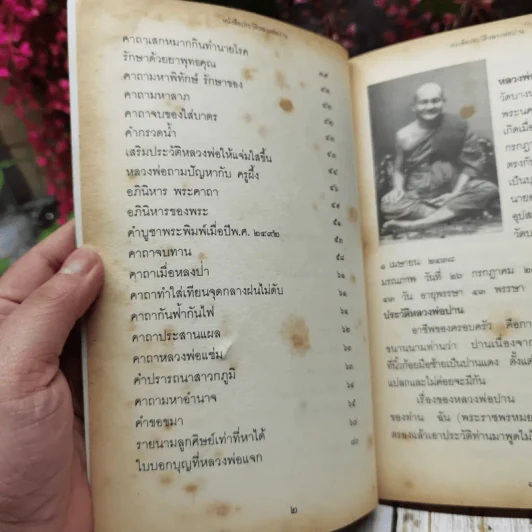 คาถาเสกหมากกินทำนายโรค
รักษาด้วยยาพุทธคุณ ๔๙
คาถามหาพิทักษ์ รักษาของ
คาถามหาลาภ
คาถาจบของใส่บาตร
คำกรวดน้ำ
เสริมประวัติหลวงพ่อให้แจ่มใสขึ้น
หลวงพ่อถามปัญหากับ ครูผึ้ง
อภินิหาร พระคาถา
อภินิหารของพระ
คำบูชาพระพิมพ์เมื่อปีพ.ศ. ๒๔๙๒
คาถาจบทาน
คาถาเมื่อหลงป่า
คาถาทำใส่เทียนจุดกลางฝนไม่ดับ
คาถากันฟ้ากันไฟ
คาถาประสานแผล
คาถาหลวงพ่อแช่ม
คำปรารถนาสาวกภูมิ
คาถามหาอำนาจ
คำขอขมา
รายนามลูกศิษย์เท่าที่หาได้
ใบบอกบุญที่หลวงพ่อแจก
๒
หลวงพ่
วัดบางน
พระนค
เกิดเมื่
กรกฎา
ตรงกับ
เป็นบุ
นายอ
อุปส
วัดบ
๑ เมษายน ๒๔๓๘
มรณภาพ วันที่ ๒๖ กรกฎาคม ๒
๔๓ วัน อายุพรรษา ๔๓ พรรษา
ประวัติหลวงพ่อปาน
อาชีพของครอบครัว คือกา
ขนานนามท่านว่า ปานเนื่องจาก
ที่นิ้วก้อยมือซ้ายเป็นปานแดง ตั้งแต่
แปลกและไม่ค่อยจะมีกัน
เรื่องของหลวงพ่อปาน
ของท่าน ฉัน (พระราชพรหมย
ตรองแล้วเอาประวัติท่านมาพูดไม่